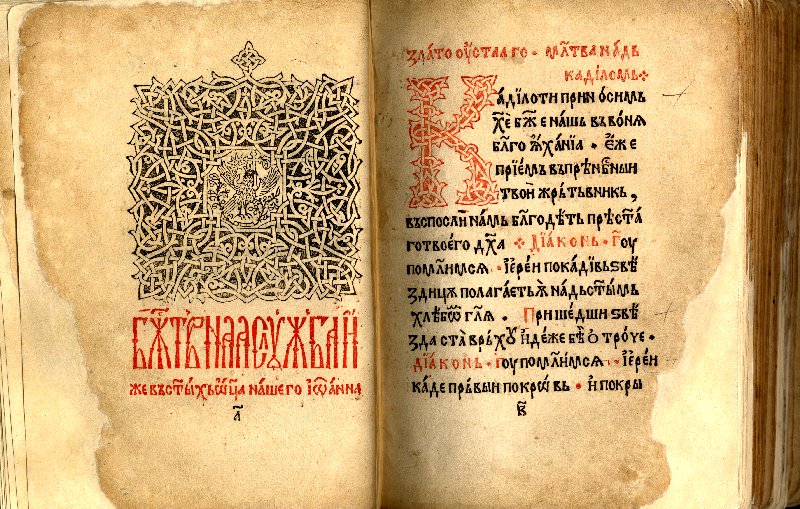 БЖ҃ТВ꙽НАА СЛꙋЖБА И҆
же въ ст҃ыхь ѿц҃а на́шего Іѡ҆а́нна
а҃
златоꙋ́стааго · мл҃тва на́дь
кади́ломь ⁘
Кади́ло ти прин ѻ́симь
хе҃ бж҃е на́шь въ во́ня
бл҃го ꙋ҆ха́нїа · е҆́же
прїе́мь въ прѣнб҃ныи
твои же́рьтьвникь ,
въспосли́ на́мь бл҃года́ть прѣст҃а
го твоего̀ дх҃а ⁘ Дїа́конь · Гоу
помл҃имся · І҆ере́и покади́вь ѕвѣ
здицꙋ полага́еть ѧ҆̀ на́дь ст҃ымь
хлѣ́бѡⷨ гл҃я . При́шедши ѕвѣ
зда̀ ста̀ врь́хꙋ и҆де́же бѣ̀ ѻ҆троче ·
Дїа́конь · Гоу помл҃имся · І҆ере́и
ка́де пръ́выи покрѡ́вь · И҆ покры
в҃